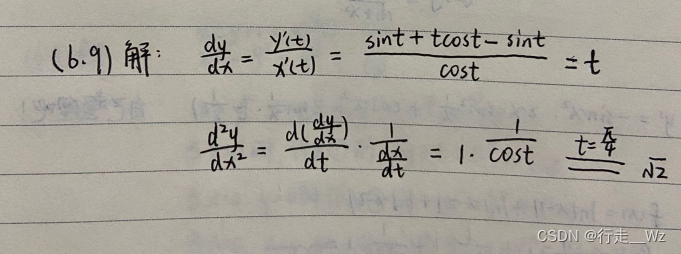 (6.9) 解: dy/dx = y'(t)/x'(t) = (sint + tcost - sint)/cost = t
d²y/dx² = d(dy/dx)/dt · 1/(dx/dt) = 1 · 1/cost t=π/4 √2
CSDN @行走__Wz